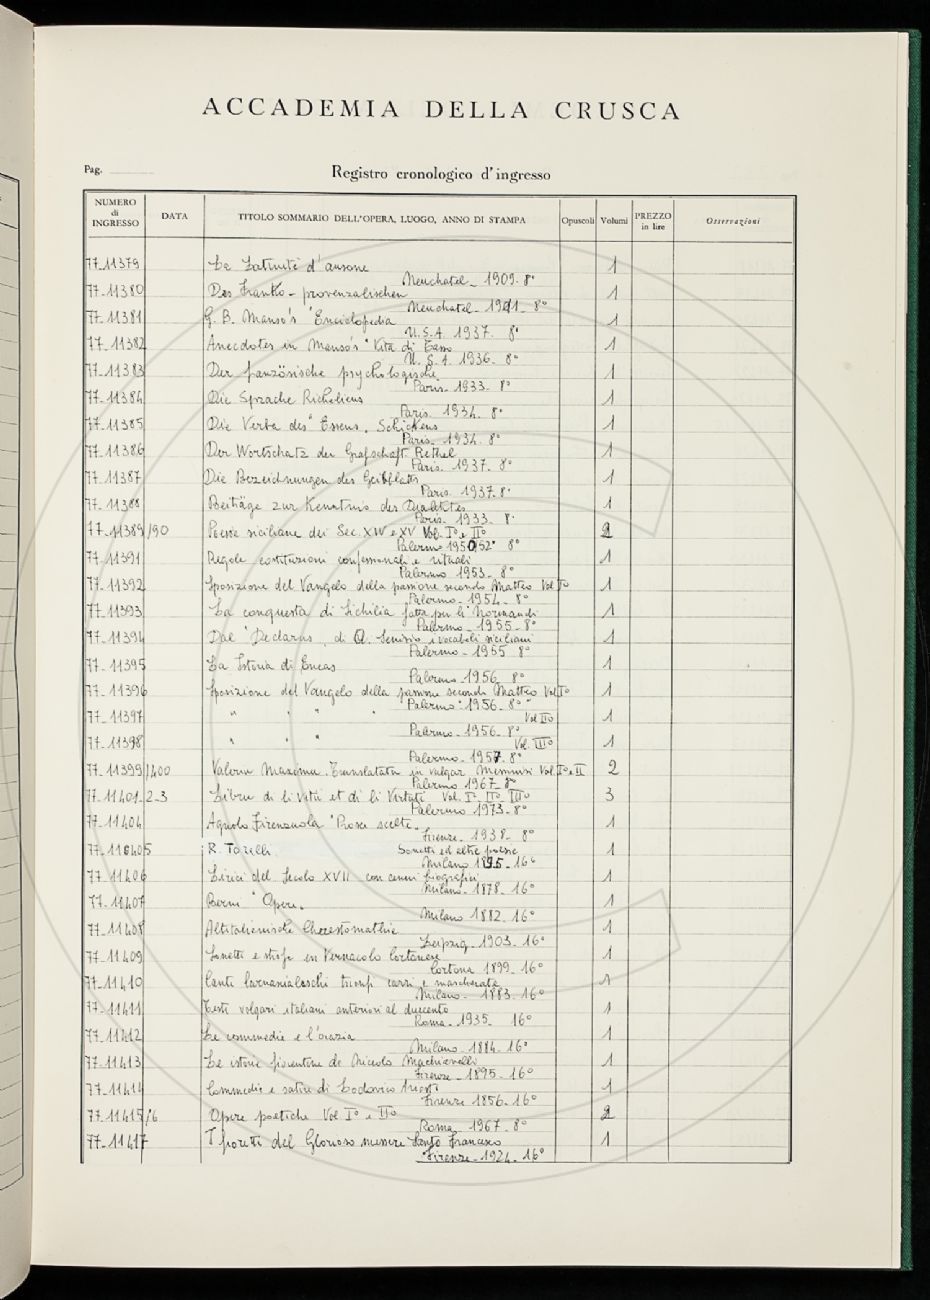 ACCADEMIA DELLA CRUSCA
Pag.
Registro cronologico d'ingresso
NUMERO di INGRESSO DATA TITOLO SOMMARIO DELL'OPERA, LUOGO, ANNO DI STAMPA Opuscoli Volumi PREZZO in lire Osservazioni
77-11379 La Latinité d'ausone 1
Neuchatel - 1909. 8°
77-11380 Des Franko - provenzalischen 1
Neuchatel - 1911 - 8°
77-11381 G. B. Manso's "Enciclopedia 1
U.S.A. 1937. 8°
77-11382 Anecdotes in Manso's "Vita di Tasso 1
U.S.A. 1936. 8°
77-11383 Der französische psychologische 1
Paris. 1933. 8°
77-11384 Die Sprache Richeliens 1
Paris. 1934. 8°
77-11385 Die Verba des "Essens, Schickens 1
Paris. 1934. 8°
77-11386 Der Wortschatz der Grafschaft Rethel 1
Paris. 1937. 8°
77-11387 Die Bezeichnungen des 1
Paris 1937. 8°
77-11388 Beiträge zur Kenntnis des Dialektes 1
Paris. 1933. 8°
77-11389/90 Poesie siciliane dei Sec. XIV e XV Vol. I° e II° 2
Palermo 1950/52° 8°
77-11391 Regole costituzioni confessionali e rituali 1
Palermo 1953. 8°
77-11392 Sposizione del Vangelo della passione secondo Matteo Vol I° 1
Palermo - 1954. 8°
77-11393 La conquesta di Sichilia fatta per li Normandi 1
Palermo - 1955 - 8°
77-11394 Dal "Declarus" di A. Senisio i vocaboli siciliani 1
Palermo - 1955 8°
77-11395 La Istoria di Eneas 1
Palermo 1956 8°
77-11396 Sposizione del Vangelo della passione secondo Matteo Vol I° 1
Palermo 1956. 8°
77-11397 " " " " Vol II° 1
Palermo - 1956. 8°
77-11398 " " " Vol. III° 1
Palermo - 1957. 8°
77-11399/400 Valeriu Maximu Translatatu in vulgar Messinisi Vol. I° e II 2
Palermo 1967 - 8°
77-11401-2-3 Libru di li vitii et di li virtuti Vol. I° II° III° 3
Palermo - 1973 - 8°
77-11404 Agnolo Firenzuola "Prose scelte" 1
Firenze - 1938 - 8°
77-11405 R. Torelli Sonetti ed altre poesie 1
Milano 1895 - 16°
77-11406 Lirici del Secolo XVII con cenni biografici 1
Milano - 1878 - 16°
77-11407 Berni "Opere" 1
Milano 1882 - 16°
77-11408 Altitalienische Chrestomathie 1
Leipzig - 1903 - 16°
77-11409 Sonetti e strofe in Vernacolo Cortonese 1
Cortona 1899 - 16°
77-11410 Canti carnascialeschi trionfi carri e mascherate 1
Milano - 1883 - 16°
77-11411 Testi volgari italiani anteriori al duecento 1
Roma - 1935 16°
77-11412 Le commedie e l'orazia 1
Milano - 1884 - 16°
77-11413 Le istorie fiorentine de Nicolo Machiavelli 1
Firenze - 1895 - 16°
77-11414 Commedie e satire di Lodovico Ariosti 1
Firenze 1856 - 16°
77-11415/6 Opere poetiche Vol I° e II° 2
Roma 1967 - 8°
77-11417 I fioretti del Glorioso messere Santo Francesco 1
Firenze - 1924 - 16°